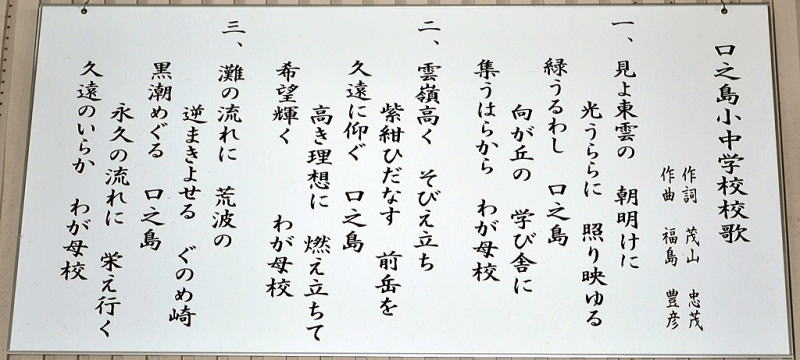 口之島小中学校校歌
作詞 茂山 忠茂
作曲 福島 豊彦
一、見よ東雲の 朝明けに
光うららに 照り映ゆる
緑うるわし 口之島
向が丘の 学び舎に
集うはらから わが母校
二、雲嶺高く そびえ立ち
紫紺ひだなす 前岳を
久遠に仰ぐ 口之島
高き理想に 燃え立ちて
希望輝く わが母校
三、灘の流れに 荒波の
逆まきよせる ぐのめ崎
黒潮めぐる 口之島
永久の流れに 栄え行く
久遠のいらか わが母校